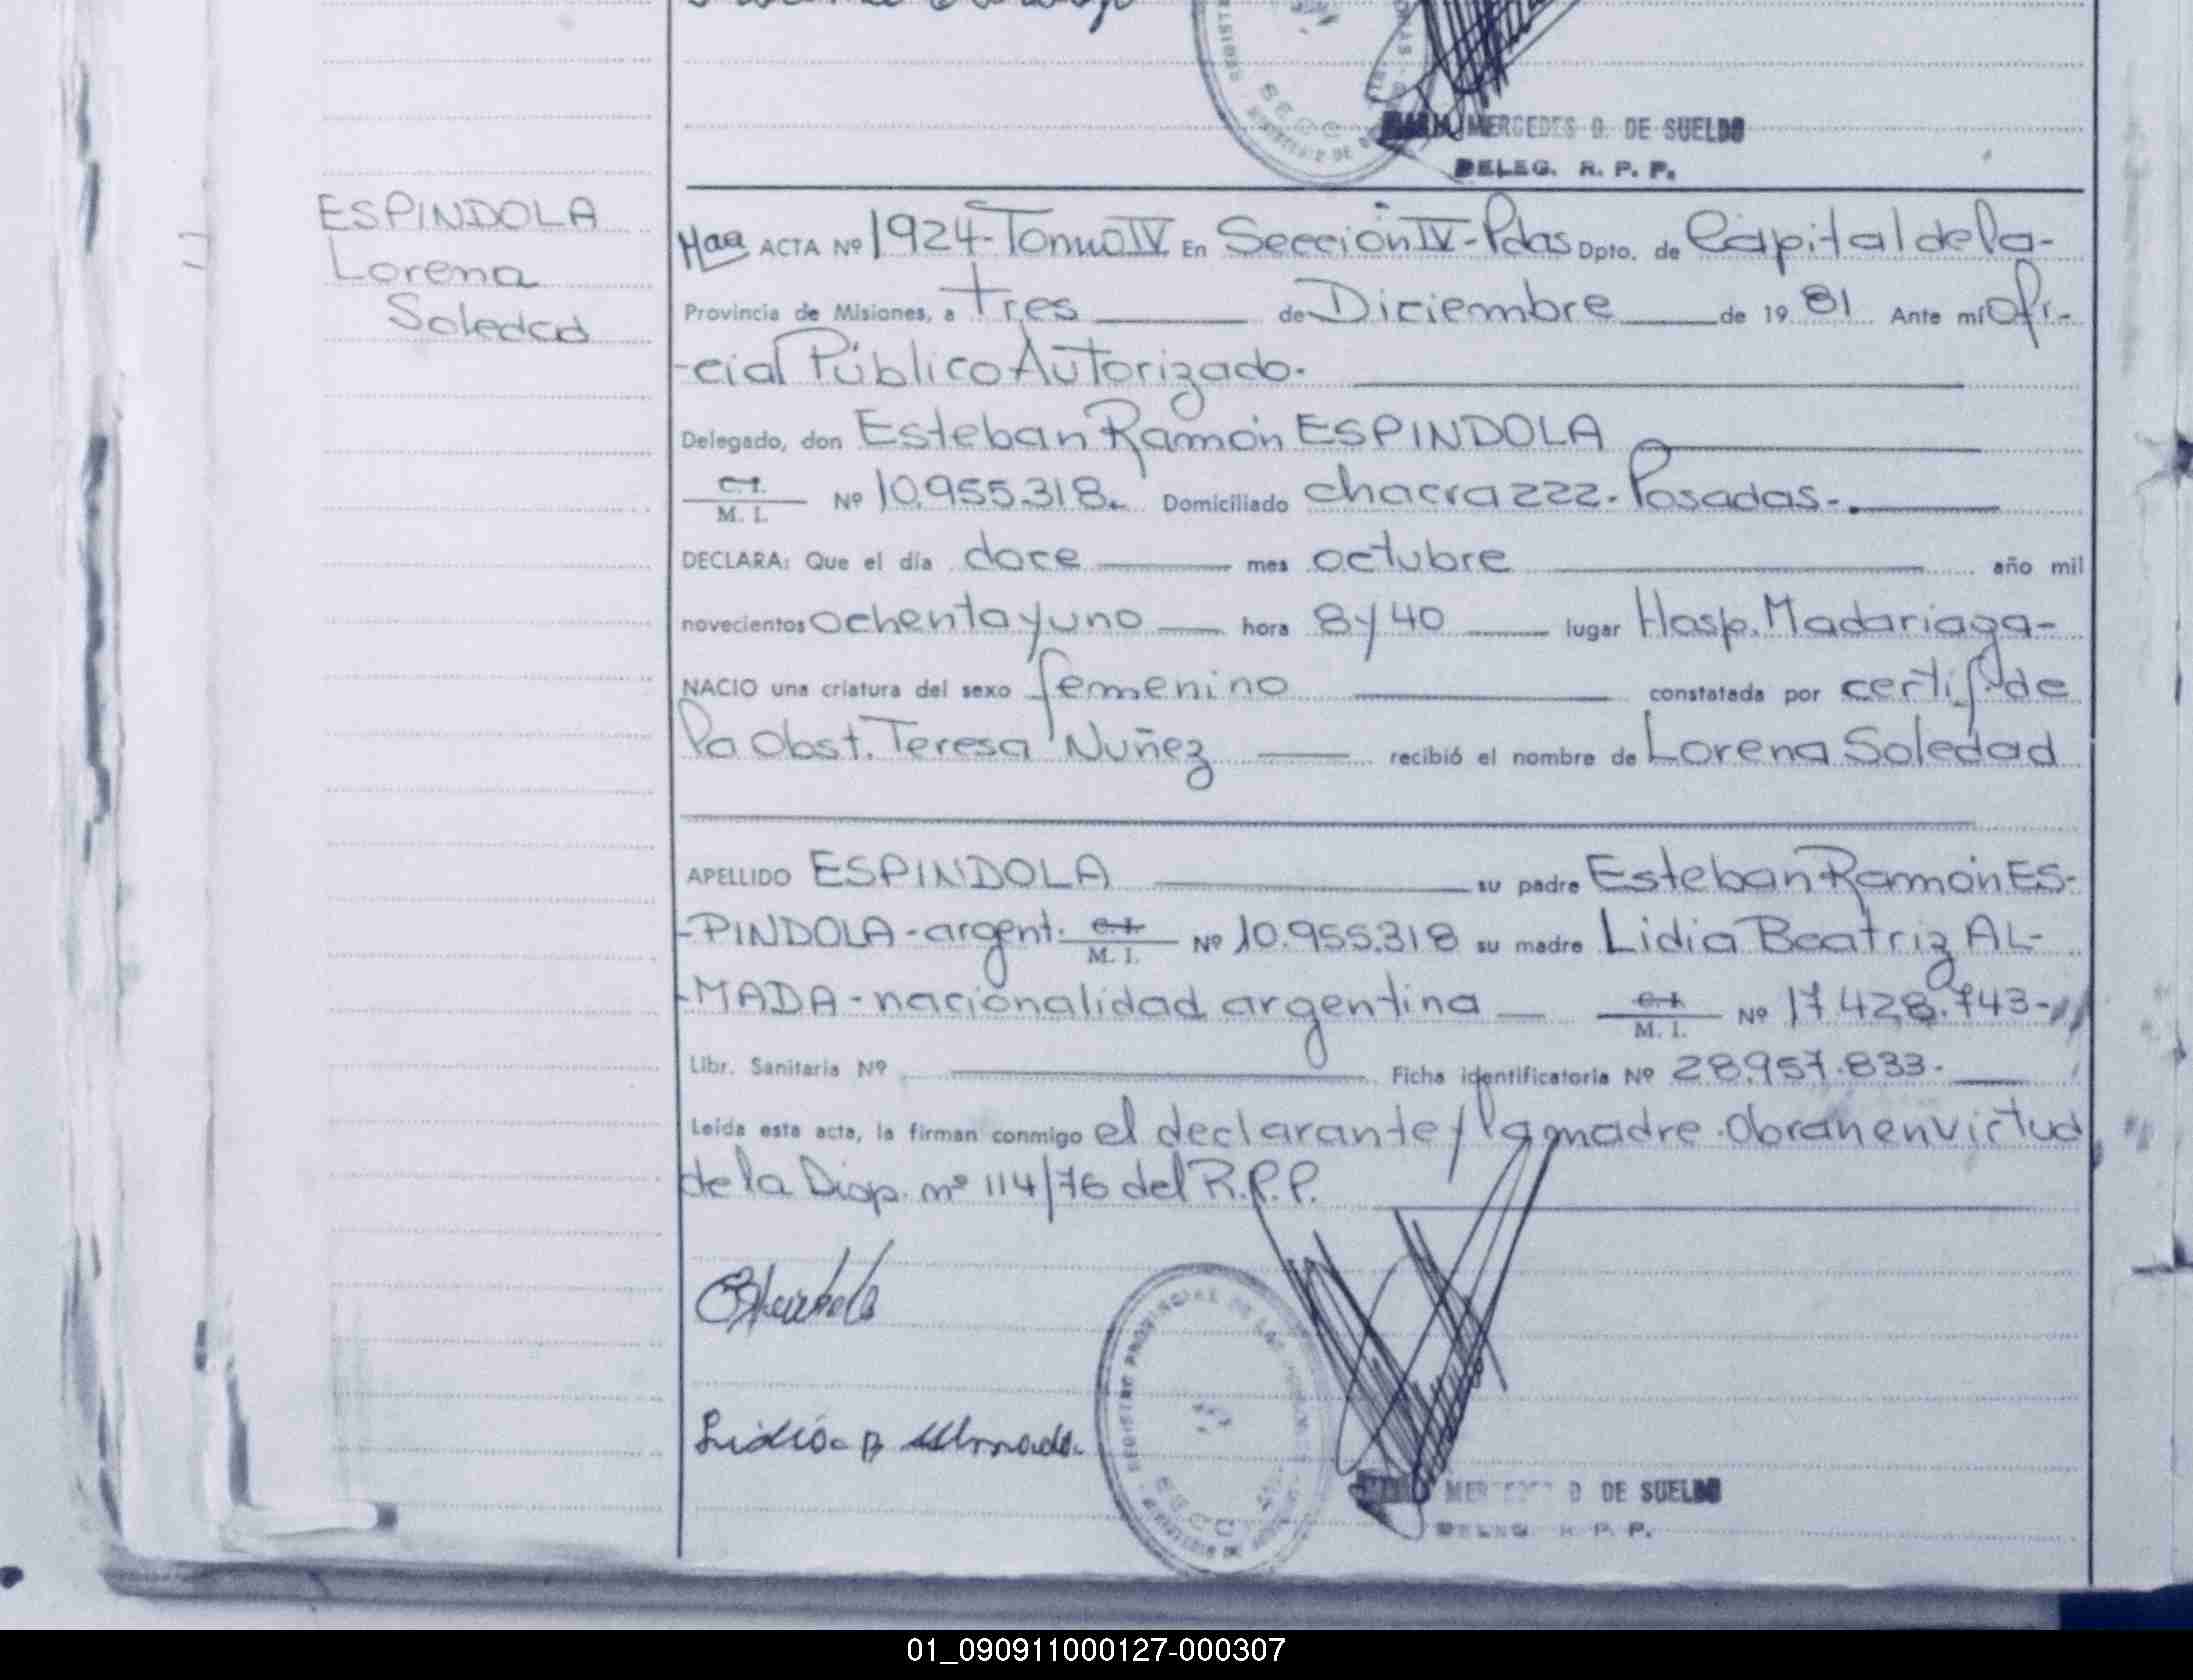 MERCEDES D. DE SUELDO
DELEG. R. P. P.
ESPINDOLA
Lorena
Soledad
ACTA Nº 1924-Tomo IV En Sección IV-Pdas Dpto. de Capital de la-
Provincia de Misiones, a tres de Diciembre de 19 81 Ante mí Ofi-
-cial Público Autorizado.
Delegado, don Esteban Ramón ESPINDOLA
C.I.
M. I. Nº 10.955.318. Domiciliado chacra 222. Posadas-.
DECLARA: Que el día doce mes octubre año mil
novecientos ochenta y uno hora 8 y 40 lugar Hosp. Madariaga-
NACIO una criatura del sexo femenino constatada por certif. de
la Obst. Teresa Nuñez recibió el nombre de Lorena Soledad
APELLIDO ESPINDOLA su padre Esteban Ramón ES-
-PINDOLA-argent. C.I.
M. I. Nº 10.955.318 su madre Lidia Beatriz AL-
-MADA-nacionalidad argentina C.I.
M. I. Nº 17.428.743-
Libr. Sanitaria Nº Ficha identificatoria Nº 28.957.833.
Leída esta acta, la firman conmigo el declarante y la madre. Obran en virtud
de la Disp. nº 114/76 del R.P.P.
Lidia B Almada
REGISTRO PROVINCIAL DE LAS
MERCEDES D DE SUELDO
DELEG R P P.
01_090911000127-000307